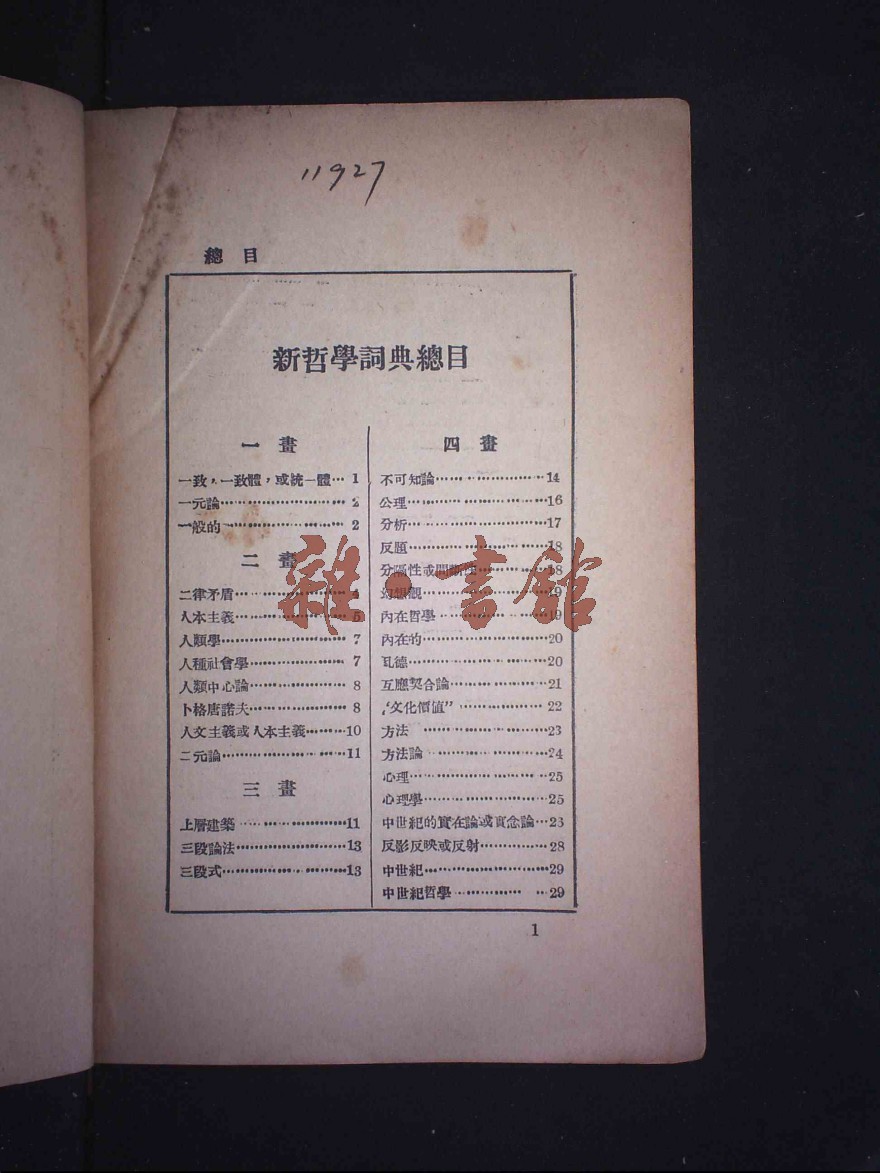 11927
總目
新哲學詞典總目
一畫
一致,一致體,或統一體…1
一元論…2
一般的…2
二畫
二律矛盾…4
人本主義…5
人類學…7
人種社會學…7
人類中心論…8
卜格唐諾夫…8
人文主義或人本主義…10
二元論…11
三畫
上層建築…11
三段論法…13
三段式…13
四畫
不可知論…14
公理…16
分析…17
反題…18
分隔性或間斷性…18
幻想觀…19
內在哲學…19
內在的…20
瓦德…20
互應契合論…21
“文化價值”…22
方法…23
方法論…24
心理…25
心理學…25
中世紀的實在論或實念論…23
反影反映或反射…28
中世紀…29
中世紀哲學…29
1
雜·書館